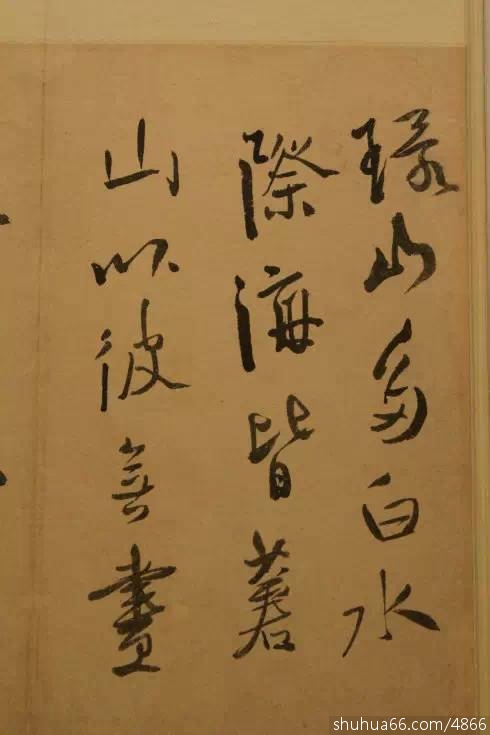 山多白水
際海皆蒼
山以彼無盡
shuhua66.com/4866